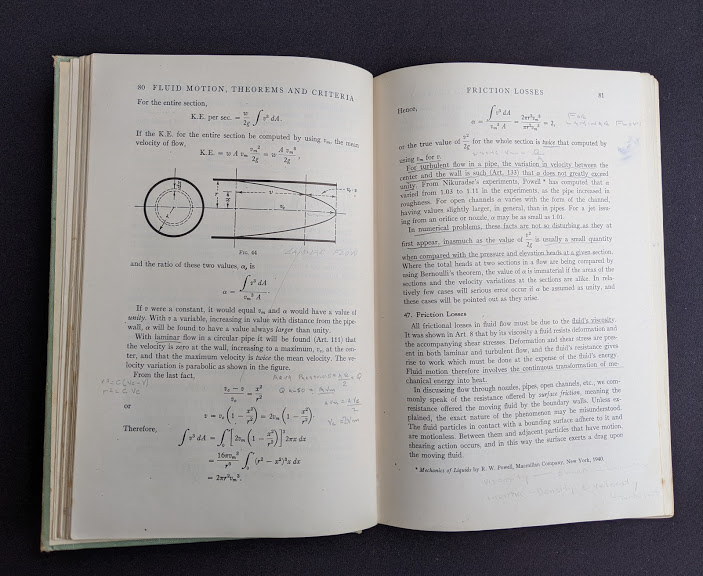 80 FLUID MOTION, THEOREMS AND CRITERIA
For the entire section,
K.E. per sec. = w/2g ∫ v³ dA.
If the K.E. for the entire section be computed by using vₘ, the mean
velocity of flow,
K.E. = w A vₘ vₘ²/2g = w A vₘ³/2g,
FIG. 44
and the ratio of these two values, α, is
α = ∫ v³ dA / vₘ³ A
If v were a constant, it would equal vₘ and α would have a value of
unity. With v a variable, increasing in value with distance from the pipe-
wall, α will be found to have a value always larger than unity.
With laminar flow in a circular pipe it will be found (Art. 111) that
the velocity is zero at the wall, increasing to a maximum, vₑ, at the cen-
ter, and that the maximum velocity is twice the mean velocity. The ve-
locity variation is parabolic as shown in the figure.
From the last fact,
or
Therefore,
FRICTION LOSSES 81
Hence,
α = ∫ v³ dA / vₘ³ A = 2πr²vₘ³ / πr²vₘ³ = 2,
FOR
LAMINAR FLOW
or the true value of v²/2g for the whole section is twice that computed by
using vₘ for v.
For turbulent flow in a pipe, the variation in velocity between the
center and the wall is such (Art. 133) that α does not greatly exceed
unity. From Nikuradse's experiments, Powell * has computed that α
varied from 1.03 to 1.11 in the experiments as the pipe increased in
roughness. For open channels α varies with the form of the channel,
having values slightly larger, in general, than in pipes. For a jet issu-
ing from an orifice or nozzle, α may be as small as 1.01.
In numerical problems, these facts are not so disturbing as they at
first appear, inasmuch as the value of v²/2g is usually a small quantity
when compared with the pressure and elevation heads at a given section.
Where the total heads at two sections in a flow are being compared by
using Bernoulli's theorem, the value of α is immaterial if the areas of the
sections and the velocity variations at the sections are alike. In rela-
tively few cases will serious error occur if α be assumed as unity, and
these cases will be pointed out as they arise.
47. Friction Losses
All frictional losses in fluid flow must be due to the fluid's viscosity.
It was shown in Art. 8 that by its viscosity a fluid resists deformation and
the accompanying shear stresses. Deformation and shear stress are pres-
ent in both laminar and turbulent flow, and the fluid's resistance gives
rise to work which must be done at the expense of the fluid's energy.
Fluid motion therefore involves the continuous transformation of me-
chanical energy into heat.
In discussing flow through nozzles, pipes, open channels, etc., we com-
monly speak of the resistance offered by surface friction, meaning the
resistance offered the moving fluid by the boundary walls. Unless ex-
plained, the exact nature of the phenomenon may be misunderstood.
The fluid particles in contact with a bounding surface adhere to it and
are motionless. Between them and adjacent particles that have motion,
shearing action occurs, and in this way the surface exerts a drag upon
the moving fluid.
* Mechanics of Liquids by R. W. Powell, Macmillan Company, New York, 1940.